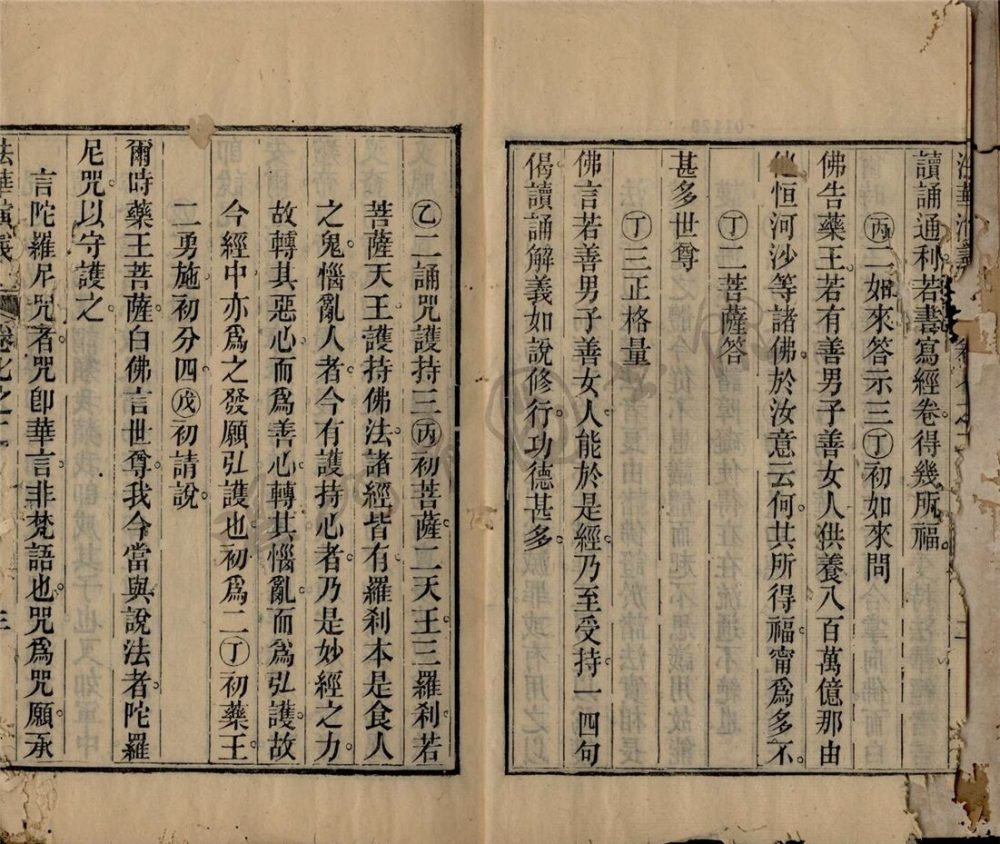 讀誦通利若書寫經卷得幾所福
㊂二如來答示三㊃初如來問
佛告藥王若有善男子善女人供養八百萬億那由
他恒河沙等諸佛於汝意云何其所得福甯爲多不
㊃二菩薩答
甚多世尊
㊃三正格量
佛言若善男子善女人能於是經乃至受持一四句
偈讀誦解義如說修行功德甚多
㊁二誦咒護持三㊂初菩薩二天王三羅刹若
菩薩天王護持佛法諸經皆有羅刹本是食人
之鬼惱亂人者今有護持心者乃是妙經之力
故轉其惡心而爲善心轉其惱亂而爲弘護故
今經中亦爲之發願弘護也初爲二㊃初藥王
二勇施初分四㊄初請說
爾時藥王菩薩白佛言世尊我今當與說法者陀羅
尼咒以守護之
言陀羅尼咒者咒卽華言非梵語也咒爲咒願承
法華演義 卷七之二 三